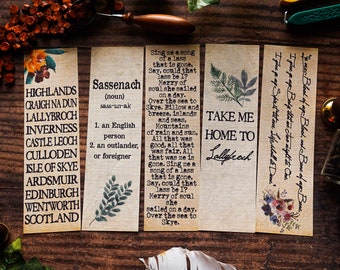 HIGHLANDS
CRAIGH NA DUN
LALLYBROCH
INVERNESS
CASTLE LEOCH
CULLODEN
ISLE OF SKYE
ARDSMUIR
EDINBURGH
WENTWORTH
SCOTLAND
Sassenach
(noun)
sass·un·ak
1. an English
person
2. an outlander,
or foreigner
Sing me a song
of a lass
that is gone.
Say, could that
lass be I?
Merry of
soul she sailed
on a day.
Over the sea to
Skye. Billow and
breeze, islands
and sean,
Mountains
of rain and sun.
All that was
good, all that
was fair, All
that was me is
gone. Sing me a
song of a lass
that is gone.
Say, could that
lass be I?
Merry of soul
she sailed
on a day. Over
the sea to
Skye.
TAKE ME
HOME TO
Lallybroch